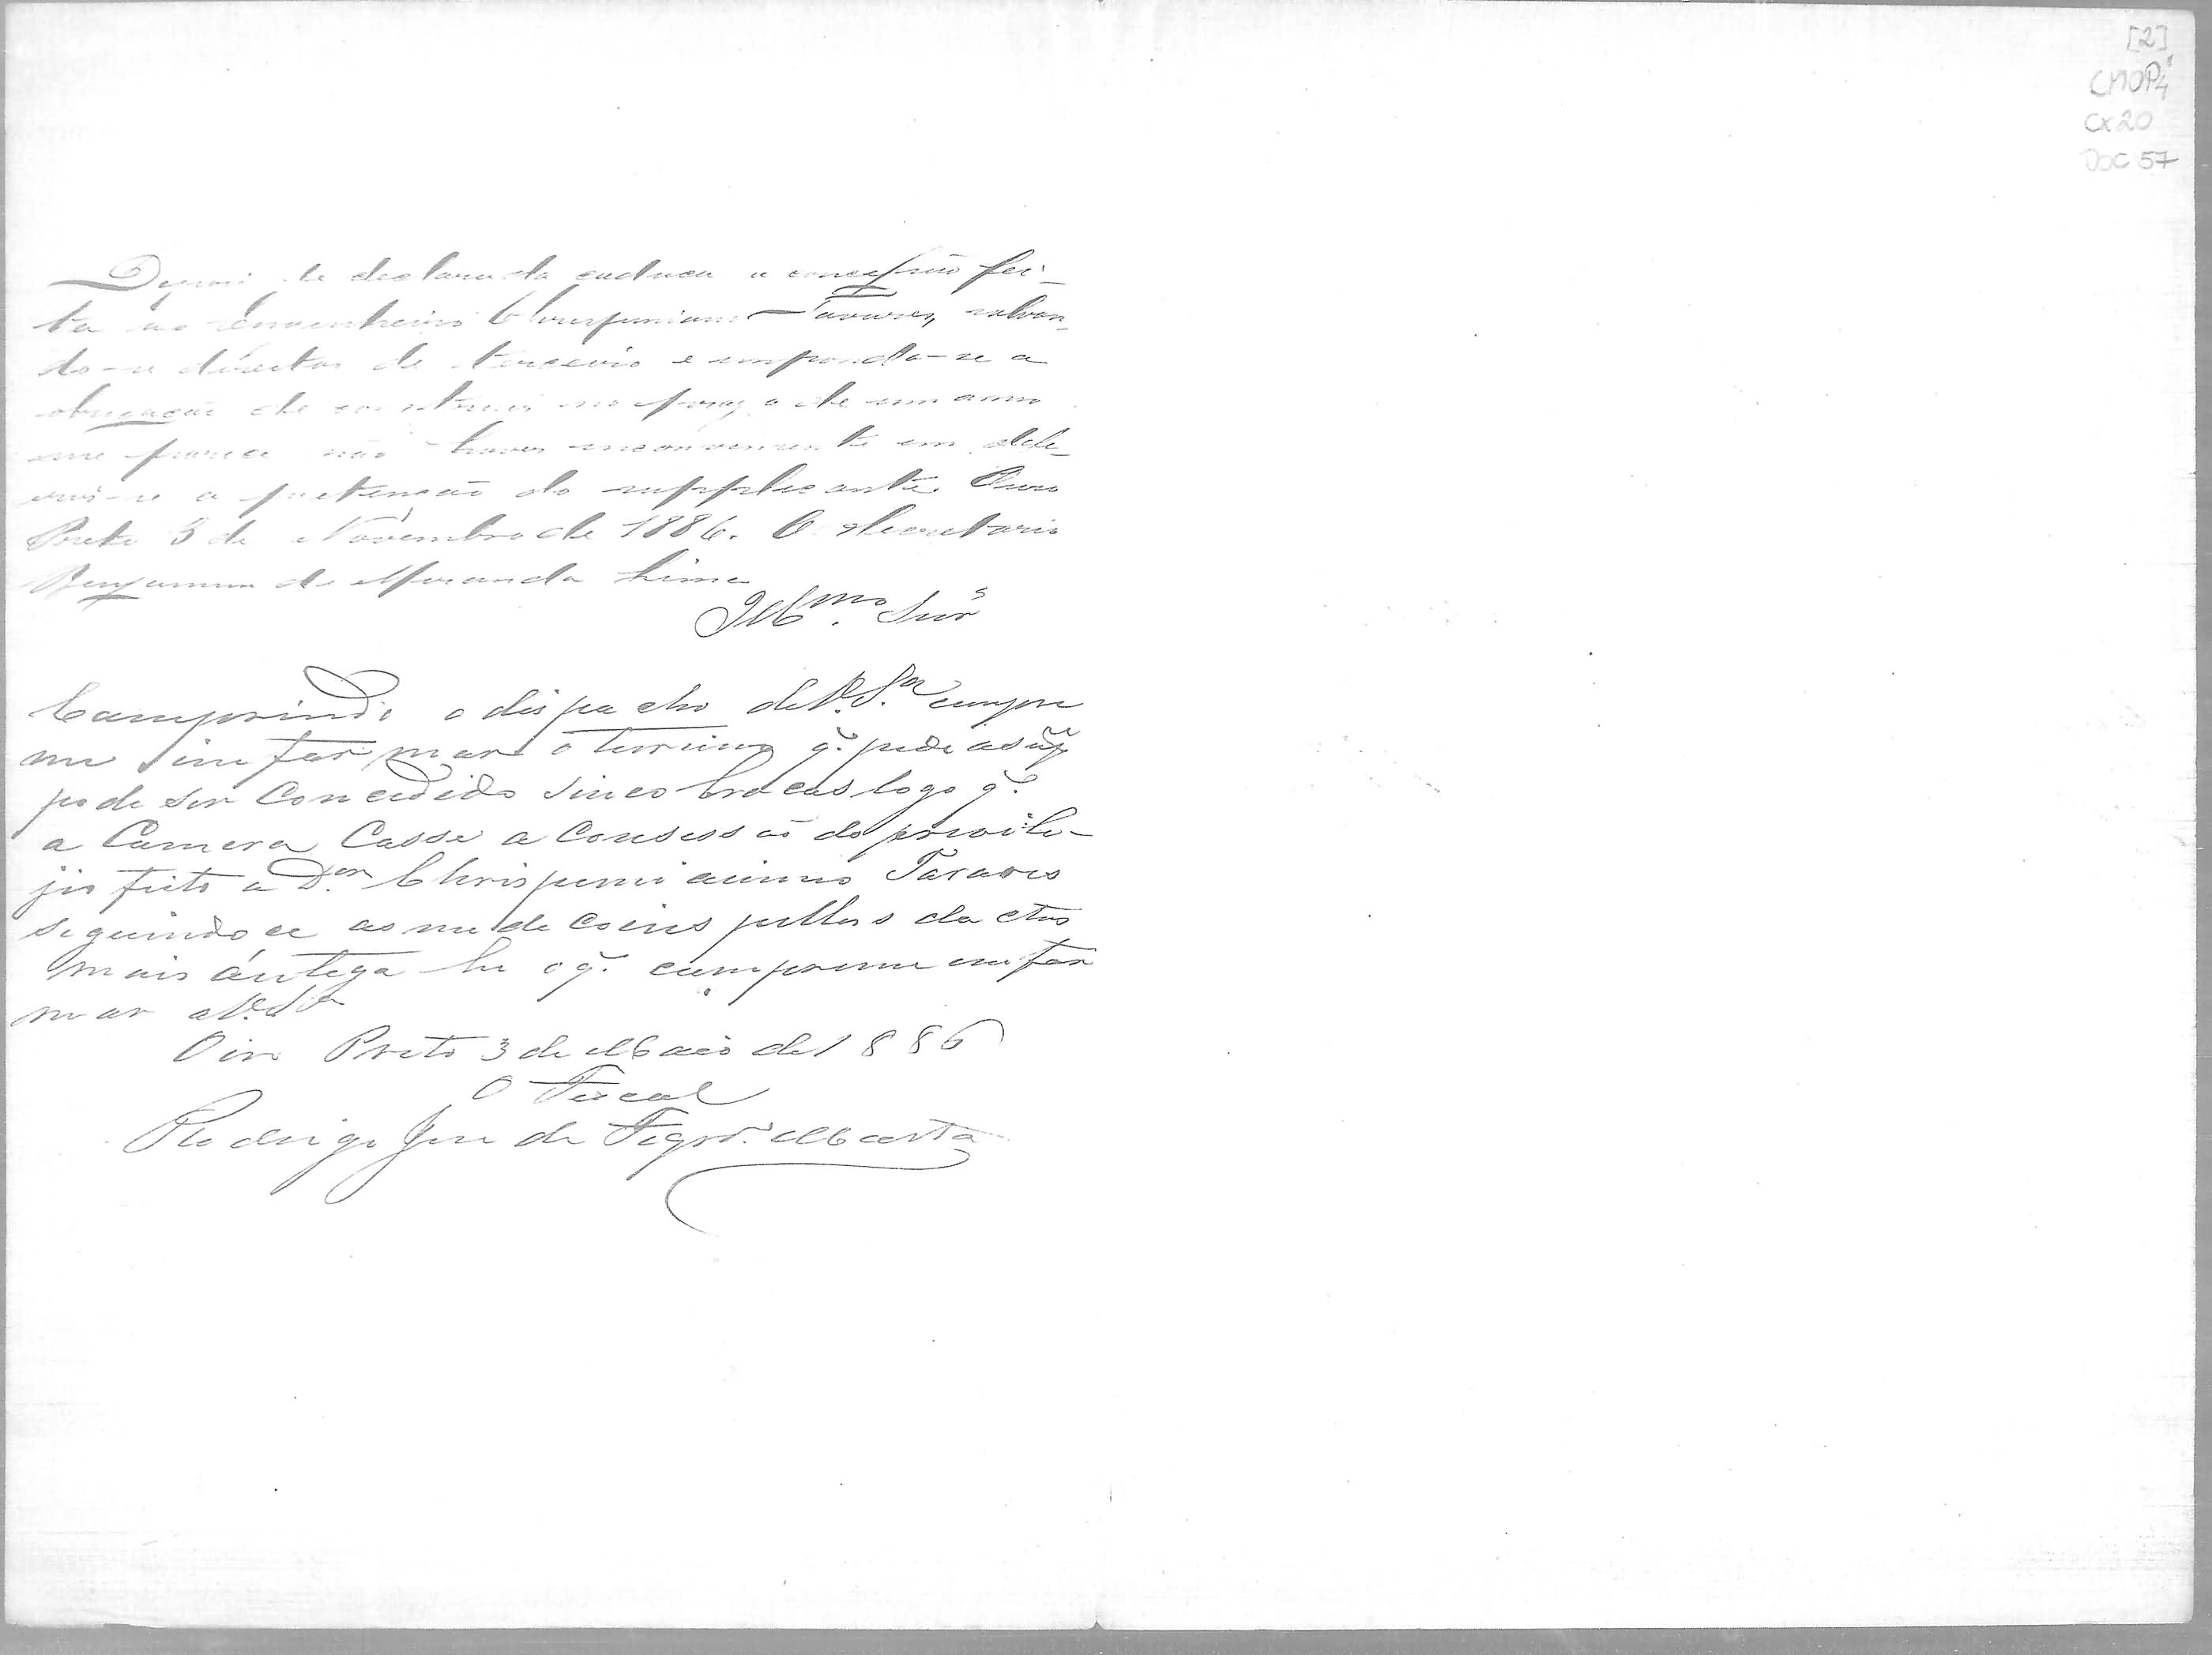 [2]
CMOP
Cx 20
DOC 57
Depois de declarada caduca a concessão fei-
ta ao engenheiro Chrispiniano Tavares, salvan-
do-se direitos de terceiro e impondo-se a
obrigação de construir no prazo de um anno
me parece não haver inconveniente em defe-
rir-se a pretenção do supplicante. Ouro
Preto 3 de Novembro de 1886. O Secretario
Benjamim de Miranda Lima
Ill.mo Snr
Comprindo o dispacho de V. S.ª cumpre
me informar o terreno q. pede
pode ser Concedido sinco bracas logo q.
a Camera Casse a Consessão do privile-
jio feito a D.or Chrispiniauno Tavares
siguindoce as
mais ántiga he o q. cumpreme enfor
mar a V. S.ª
Oiro Preto 3 de Maio de 1886
O Fiscal
Rodrigo Jose de Figrd.º